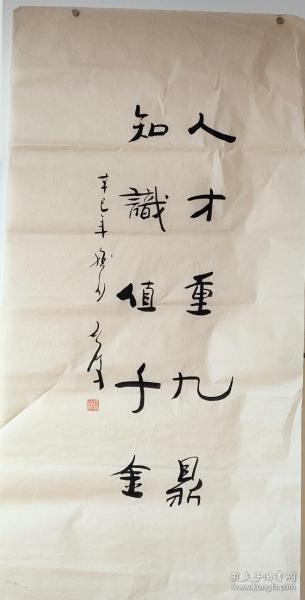 人才重九鼎
知識值千金
辛巳年
孔夫子旧书网